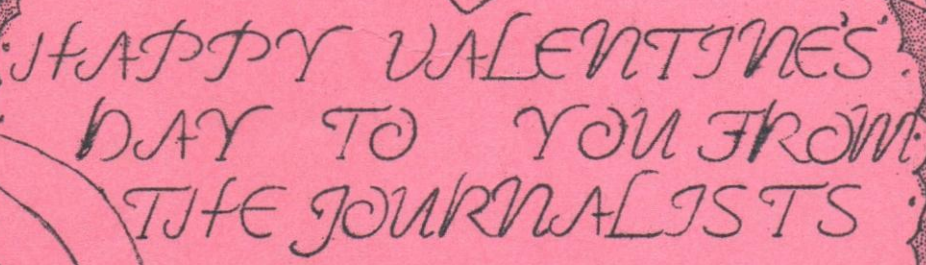 HAPPY VALENTINE'S
DAY TO YOU FROM
THE JOURNALISTS